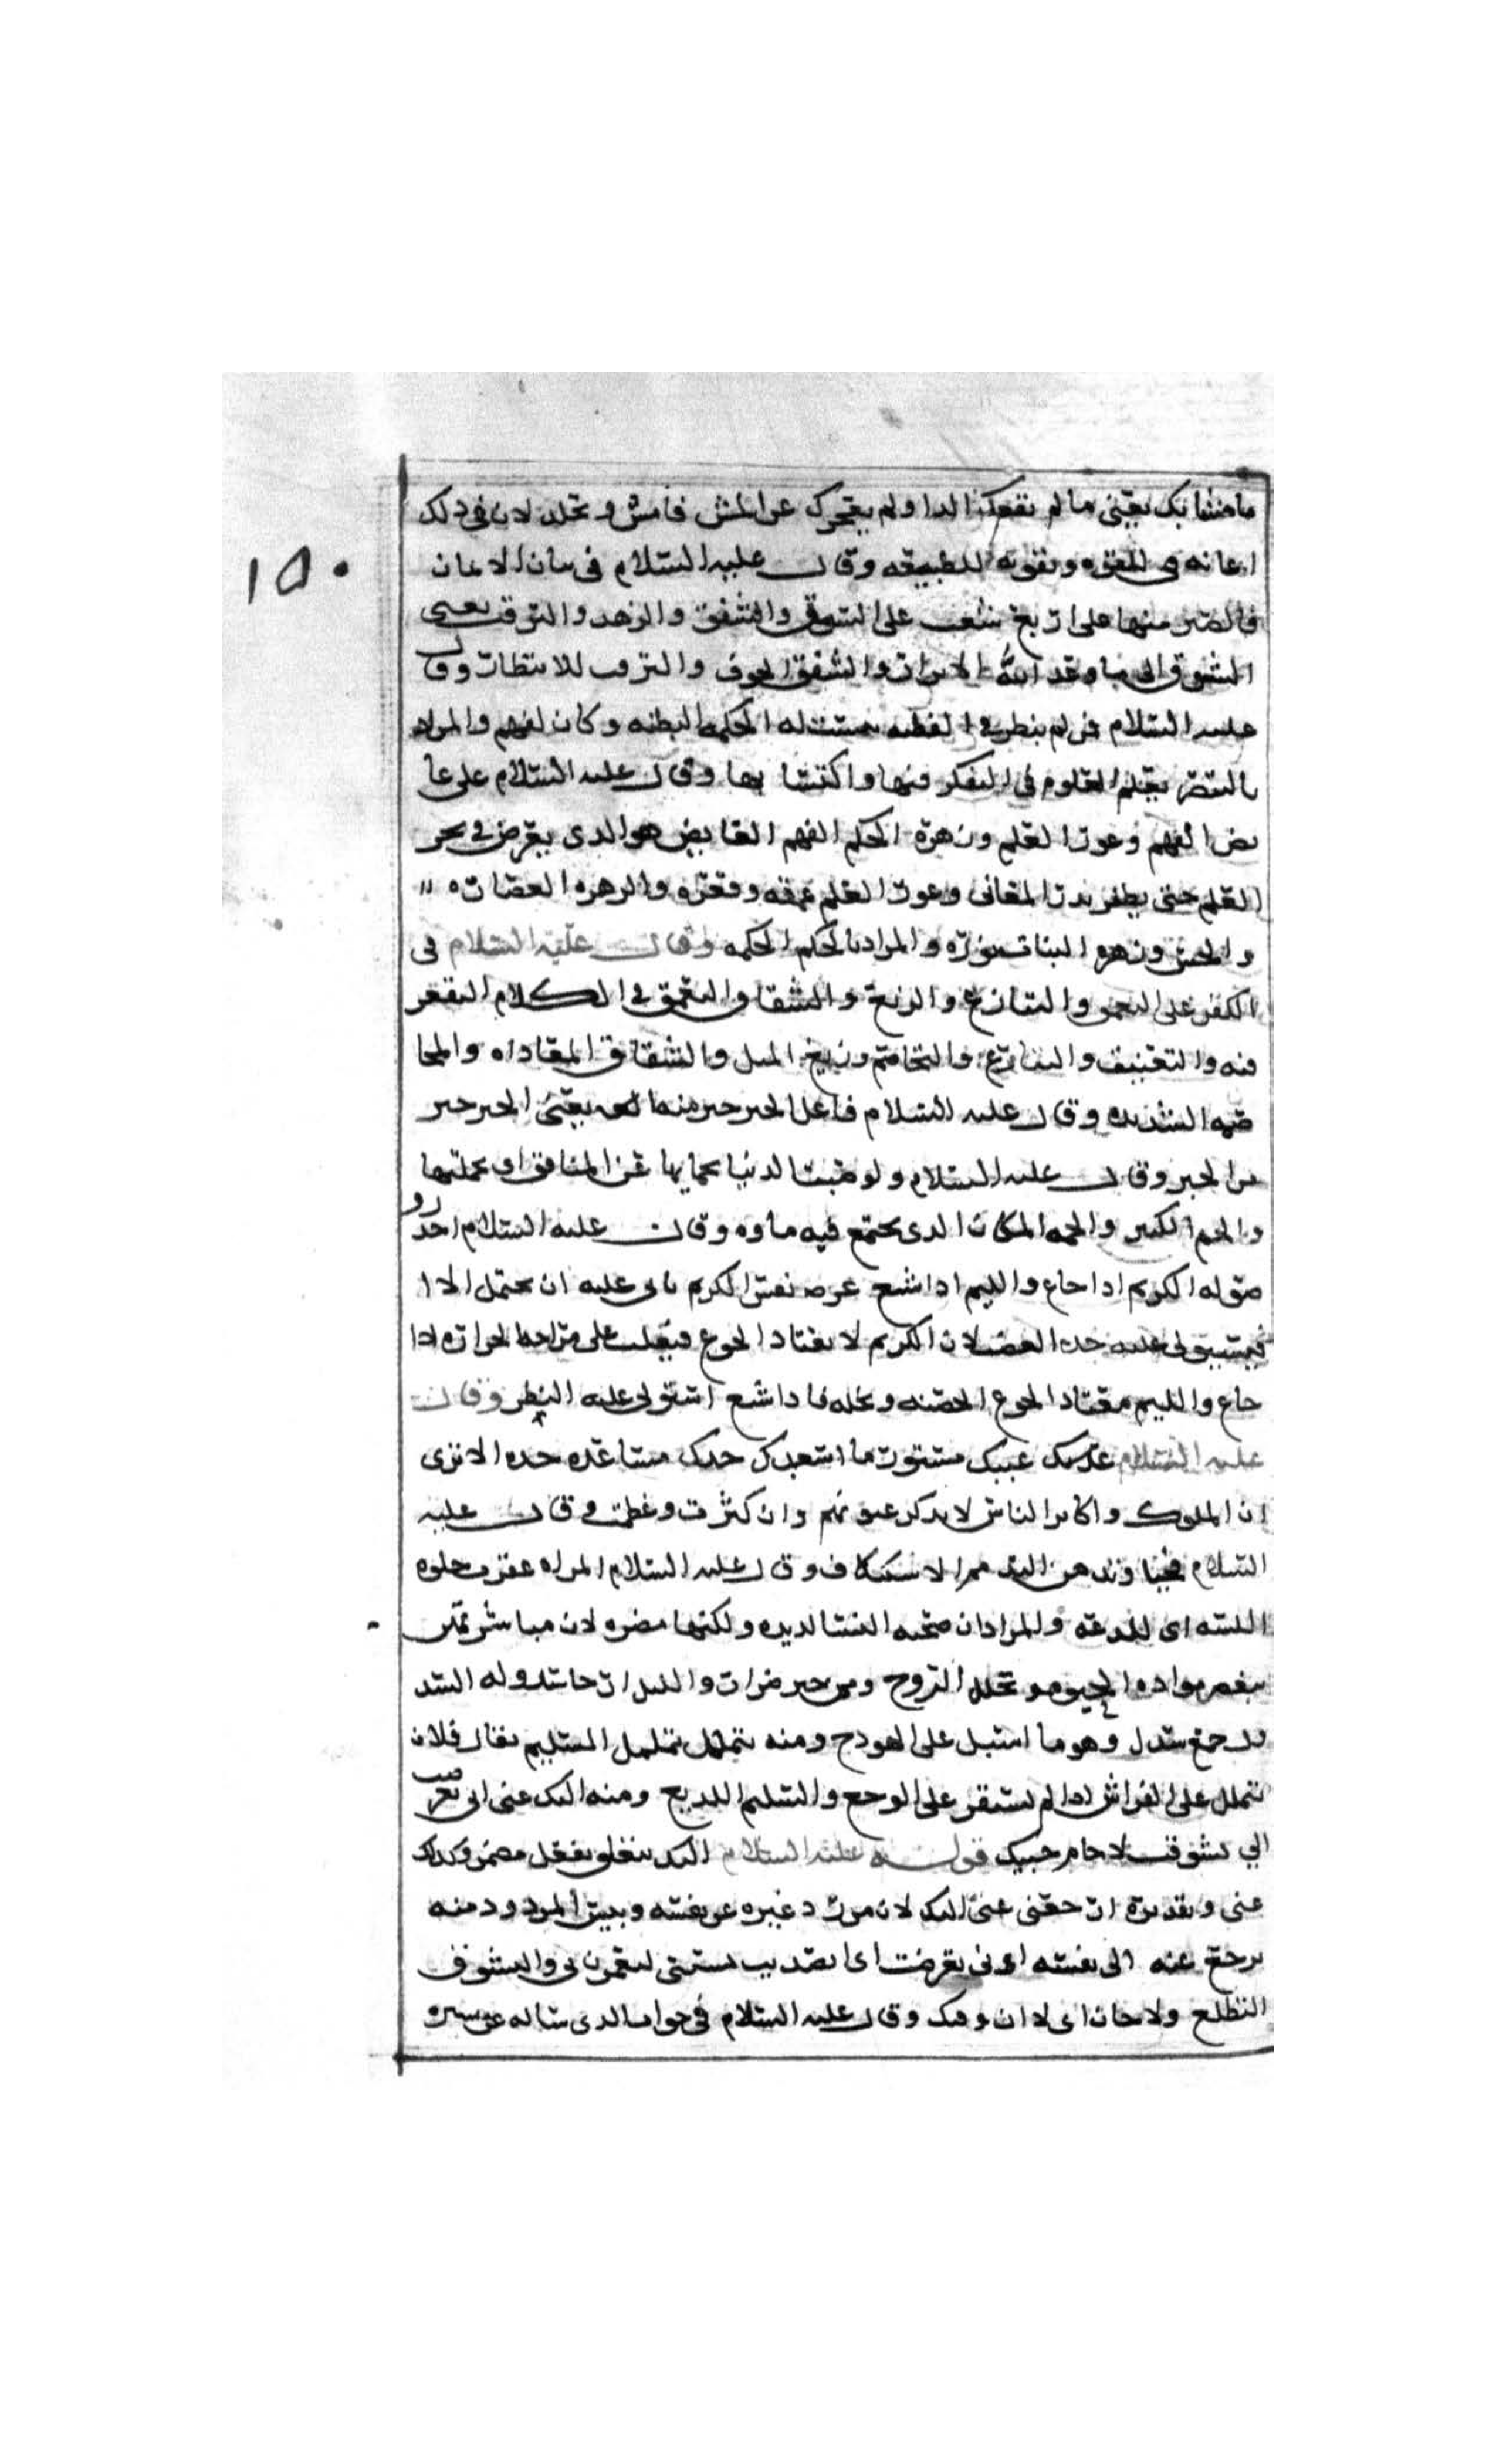 ما مشا بك يعني ما لم يقعدك الدا ولم يعجزك عن المشي فامش و تجلد لان في ذلك
اعانه من القوه وتقويه للطبيعه وقال عليه السلام في بيان الايمان
فالصبر منها على اربع شعب على الشوق والشفق والزهد والترقب يعني
الشوق الى ما وعد الله الابرار والشفق الخوف والترقب للانتظار وقال
عليه السلام فمن لم ينظر في الفطنه تبينت له الحكمه البطنه وكان لفهم والمراد
بالتبصر بعلم العلوم في التفكر فيها واكتسابها وقال عليه السلام على غا
يض الفهم وغور العلم وزهرة الحكم الفهم الغايض هو الذي يعرض في بحر
العلم حتى يظفر بدر المعاني وغور العلم عمقه وقعره والزهره الغضاره
والحسن وزهو النبات نوره والمراد بالحكم الحكمه وقال عليه السلام في
الكفر على التعمق والتنازع والزيغ والشقاق والتعمق في الكلام التقعر
فيه والتعنيف والتنازع والتخاصم وزيغ الميل والشقاق المعاداه والمخا
صمه الشديده وقال عليه السلام فاعل الخير خير منه يعني الخير خير
من الخير وقال عليه السلام ولو صببت الدنيا بجماتها على المنافق اي بجملتها
والجم الكثير والجمه المكان الذي يجتمع فيه ماوه وقال عليه السلام احذرو
صوله الكريم اذا جاع والليم اذا شبع نفس الكريم تابى عليه ان يحتمل الاذا
فيستولي عليه حده الغضب لان الكريم لا يعتاد الجوع فيغلب على مزاجه الحراره اذا
جاع والليم معتاد الجوع لخسته وبخله فاذا شبع استولى عليه البطر وقال
عليه السلام عيبك مستور ما اسعدك جدك مساعده جده الا ترى
ان الملوك واكابر الناس لا يذكر عيوبهم وان كثرت وعظمت وقال عليه
السلام الاستنكاف وقال عليه السلام المراه عقرب حلوه
اللسبه اي اللدغه والمراد ان صحبه النسا لذيذه ولكنها مضره لان مباشرتهن
ينقص مواده الحيوه و تحلل الروح ومن خبر ضرار والليل ارخا سدوله السد
ول جمع سدل وهو ما اسبل على الهودج ومنه يتململ تململ السليم يقال فلان
يتململ على الفراش اذا لم يستقر على الوجع والسليم اللديغ ومنه اليك عني ابي تعرضت
الي تشوقت لا حان حينك قوله عليه السلام اليك يتعلق بفعل مضمر وكذلك
عني وتقديره ارجعي عني اليك لان من رد غيره عن نفسه وبين المردود منه
يرجع عنه الى نفسه ابي تعرضت اي تصديت لتغريني والتشوف
التطلع ولا حان اي لا ان وقتك وقال عليه السلام في جواب الذي ساله عن مسيره
١٥٠